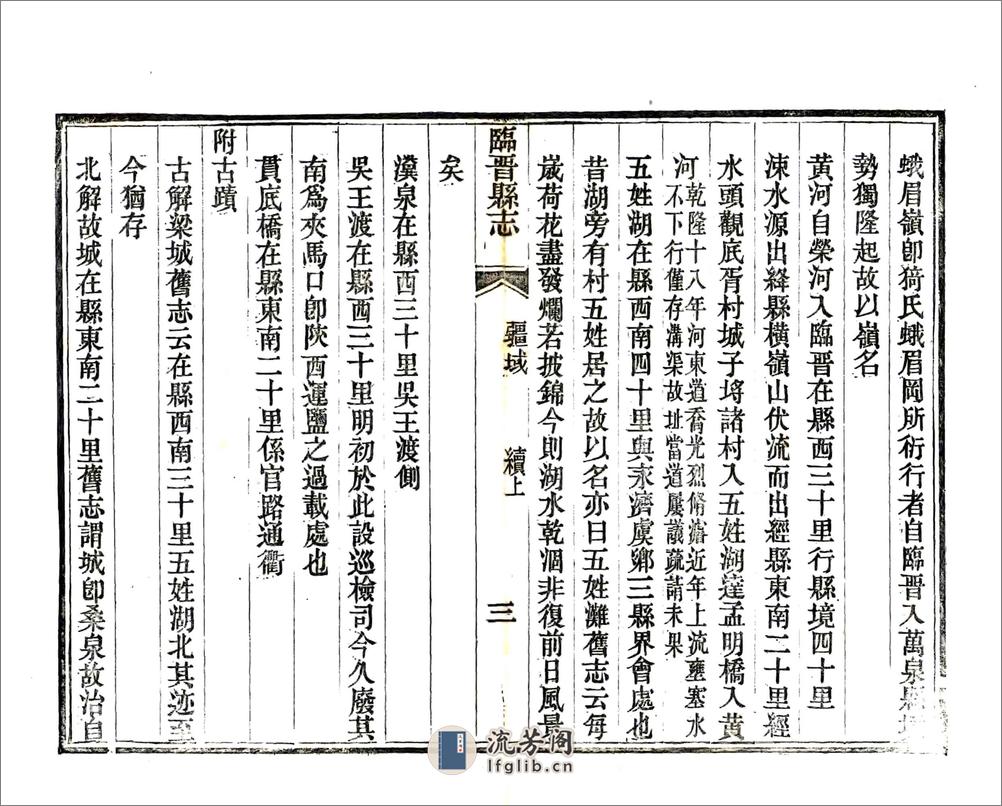 蛾眉嶺卽猗氏蛾眉岡所衍行者自臨晉入萬泉縣境
勢獨隆起故以嶺名
黃河自榮河入臨晉在縣西三十里行縣境四十里
涑水源出絳縣橫嶺山伏流而出經縣東南二十里經
水頭觀底胥村城子埒諸村入五姓湖達孟明橋入黃
河乾隆十八年河東道喬光烈脩濬近年上流壅塞水
不下行僅存溝渠故址當道屢議疏請未果
五姓湖在縣西南四十里與永濟虞鄉三縣界會處也
昔湖旁有村五姓居之故以名亦曰五姓灘舊志云每
歲荷花盡發爛若披錦今則湖水乾涸非復前日風景
矣
臨晉縣志
疆域
續上
三
瀵泉在縣西三十里吳王渡側
吳王渡在縣西三十里明初於此設巡檢司今久廢其
南爲夾馬口卽陝西運鹽之過載處也
貫底橋在縣東南二十里係官路通衢
附古蹟
古解梁城舊志云在縣西南三十里五姓湖北其迹至
今猶存
北解故城在縣東南二十里舊志謂城卽桑泉故治自
流芳閣
lfglib.cn